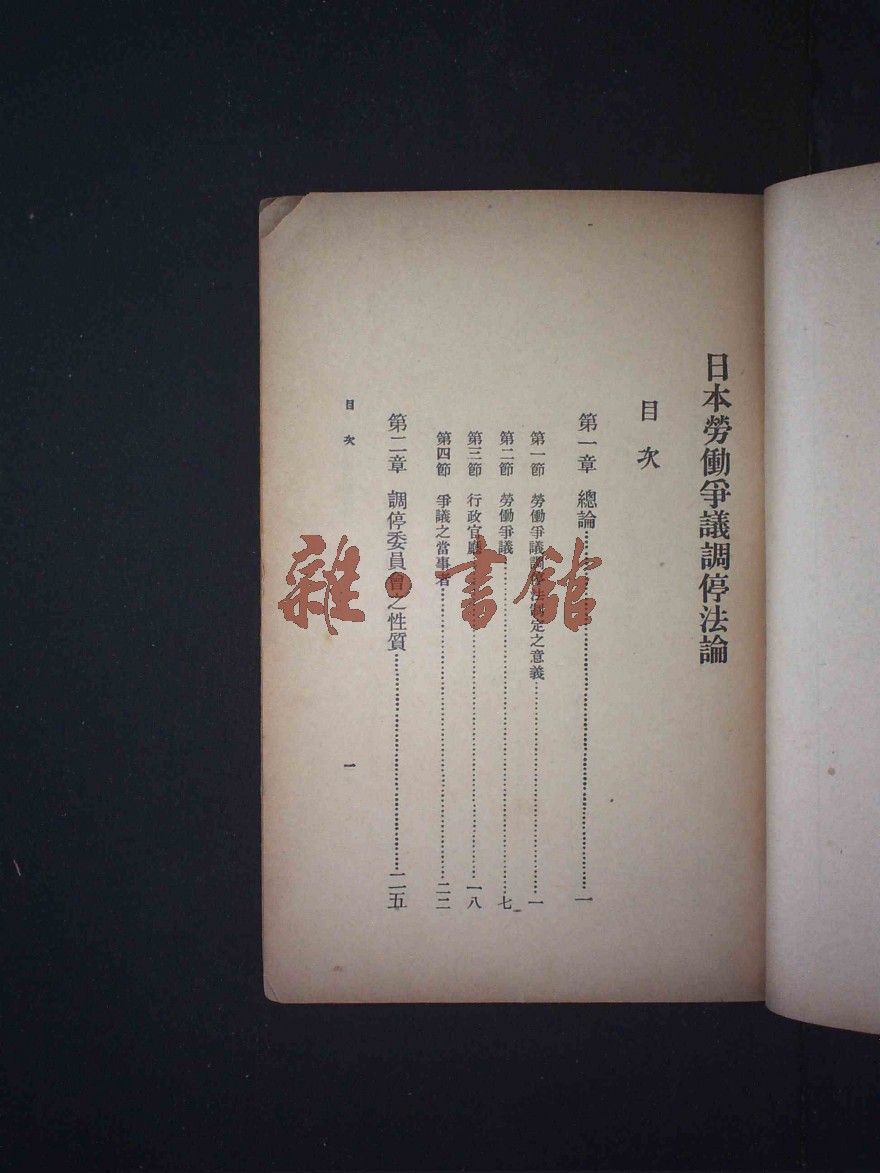 日本勞働爭議調停法論
目次
第一章 總論……一
第一節 勞働爭議調停法制定之意義……一
第二節 勞働爭議……七
第三節 行政官廳……一八
第四節 爭議之當事者……二二
第二章 調停委員會之性質……二五
目次
一
雜·書館